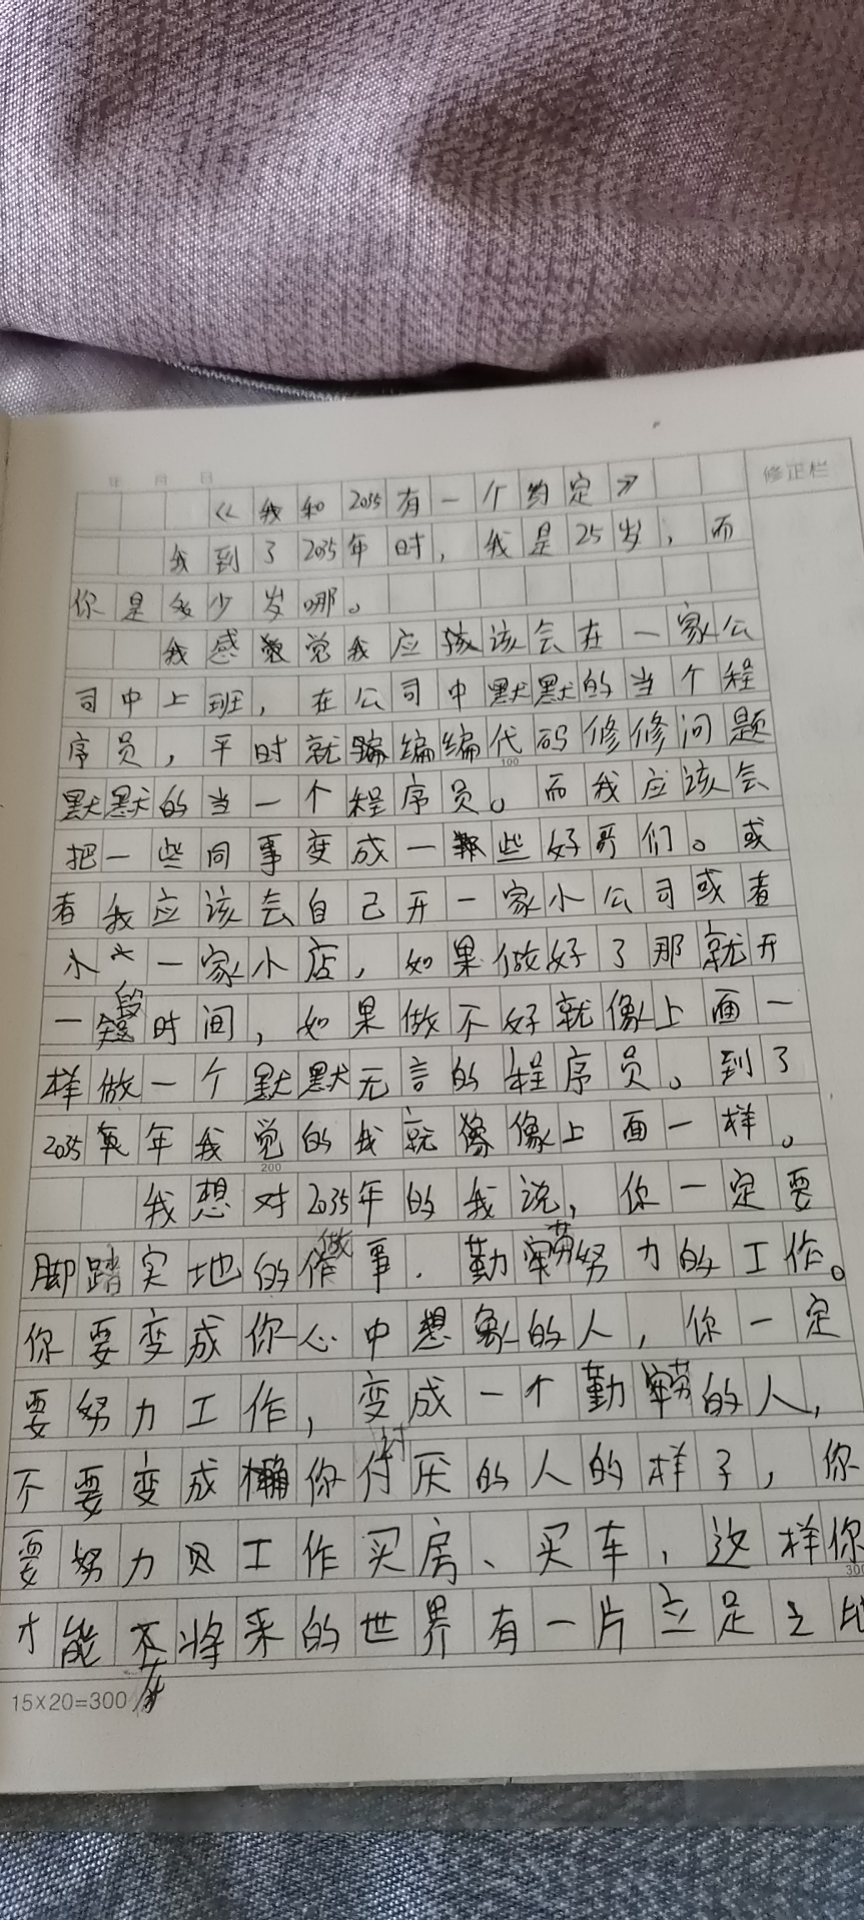 年 月 日
修正栏
《我和2035有一个约定》
我到了2035年时，我是25岁，而
你是多少岁哪。
我感觉我应该该会在一家公
司中上班，在公司中默默的当个程
序员，平时就编编代码修修问题
100
默默的当一个程序员。而我应该会
把一些同事变成一些好哥们。或
者我应该会自己开一家小公司或者
一家小店，如果做好了那就开
一段时间，如果做不好就像上面一
样做一个默默无言的程序员。到了
2035年我觉的我就像上面一样。
200
我想对2035年的我说，你一定要
脚踏实地的做事．勤劳努力的工作。
你要变成你心中想象的人，你一定
要努力工作，变成一个勤劳的人，
不要变成你讨厌的人的样子，你
要努力工作买房、买车，这样你
300
才能在将来的世界有一片立足之地
15×20=300